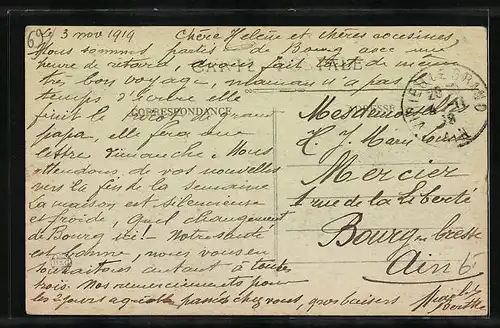 le 3 nov 1919 Chère Helène et chères cocesines
Nous sommes partis de Bourg avec une
heure de retard, avons fait
tres bon voyage, maman n'a pas
temps d'écrire elle
finit le
papa, elle fera une
lettre dimanche. Nous
attendons de vos nouvelles
vers la fin de la semaine
La maison est silencieuse
et froide, quel changement
de Bourg ici! Notre santé
est bonne, nous vous en
souhaitons autant à toute
trois. Nos remerciements pour
les 2 jours passés chez vous, gros baisers
CARTE POSTALE
CORRESPONDANCE
ADRESSE
Mesdemoiselles
H. J. Marie Louise
Mercier
1 rue de la Liberté
Bourg en bresse
Ain